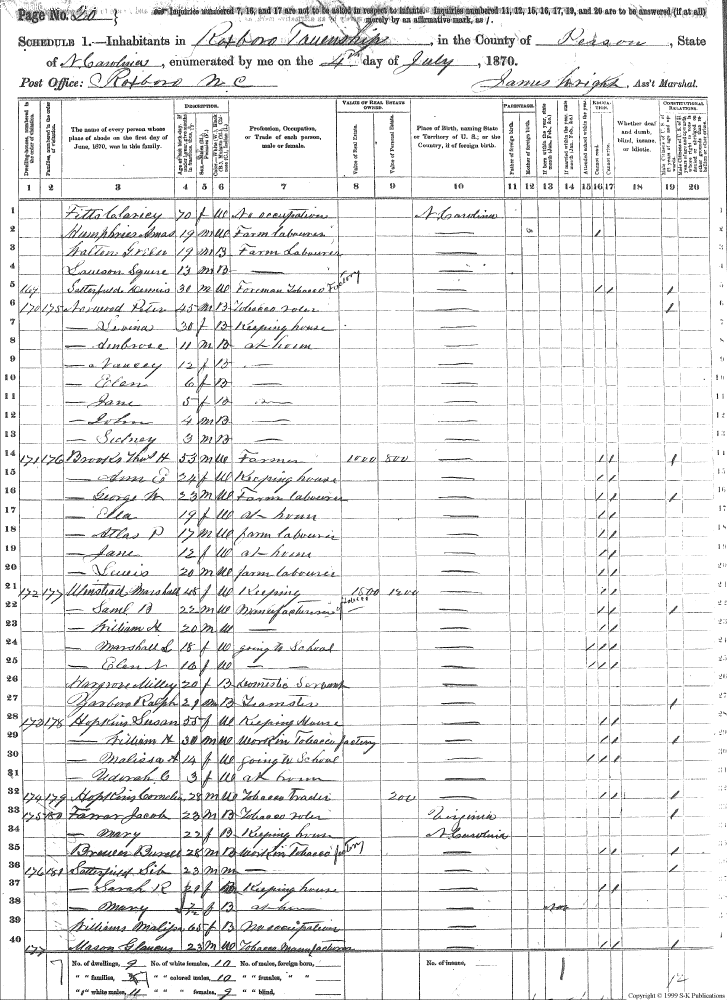 Page No. 20
Inquiries numbered 7, 16, and 17 are not to be asked in respect to infants. Inquiries numbered 11, 12, 15, 16, 17, 19, and 20 are to be answered (if at all) merely by an affirmative mark, as /.
SCHEDULE 1.—Inhabitants in Roxboro Township, in the County of Person, State
of N Carolina, enumerated by me on the 4th day of July, 1870.
Post Office: Roxboro N C James Wright, Ass't Marshal.
DESCRIPTION. VALUE OF REAL ESTATE OWNED. PARENTAGE. EDUCATION. CONSTITUTIONAL RELATIONS.
The name of every person whose place of abode on the first day of June, 1870, was in this family.
Profession, Occupation, or Trade of each person, male or female.
Value of Real Estate.
Value of Personal Estate.
Place of Birth, naming State or Territory of U. S.; or the Country, if of foreign birth.
Father of foreign birth.
Mother of foreign birth.
Cannot read.
Cannot write.
Whether deaf and dumb, blind, insane, or idiotic.
1 2 3 4 5 6 7 8 9 10 11 12 13 14 15 16 17 18 19 20
1 Fitts 70 f W No occupation N Carolina
2 Humphries 19 m W Farm Labourer — /
3 Walton 19 m B Farm Labourer —
4 Lawson Squire 13 m B — —
5 Satterfield 30 m W Foreman Tobacco Factory — / / /
6 170 175 Norwood Peter 45 m B Tobacco roler — /
7 — Levina 30 f B Keeping house —
8 — Ambrose 11 m B at hom —
9 — Nancy 12 f B — —
10 — Elen 6 f B — —
11 — Jane 5 f B — —
12 — John 4 m B — —
13 — Sidney 3 m B — —
14 171 176 Brooks Thos H 53 m W Farmer 1000 800 — / / /
15 — Ann E 24 f W Keeping house — / /
16 — George W 23 m W Farm labourer — / / /
17 — Ella 19 f W at hom — / /
18 — Atlas P 17 m W farm labourer — / /
19 — Jane 12 f W at hom — / /
20 — Lewis 20 m W farm labourer — / /
21 172 177 Umstead Marshall 45 f W Keeping 1500 1200 — / /
22 — Saml B 22 m W Manufacturing Tobacco — /
23 — William H 20 m W — — / /
24 — Marshall L 18 f W going to School — / / /
25 — Elen N 10 f W — — — / / /
26 Hargrove Milley 20 f B Domestic Servant —
27 Yarboro Ralph 21 m B Teamster — /
28 173 178 Hopkins Susan 55 f W Keeping House — / /
29 — William H 30 m W Work in Tobacco factory — / / /
30 — Malissa A 14 f W going to School — / / /
31 — C 3 f W at hom —
32 174 179 Hopkins Cornelius 28 m W Tobacco Trader 200 — / / /
33 175 180 Farrar Jacob 23 m B Tobacco roler Virginia /
34 — Mary 22 f B Keeping house N Carolina
35 28 m B Work in Tobacco factory — /
36 176 181 Satterfield Sib 23 m m — — /
37 — Sarah R 21 f B Keeping house — / /
38 — Mary f B at hom —
39 Williams 65 f B No occupation —
40 177 Mason 23 m W Tobacco Manufacturer — / / /
No. of dwellings, 9 No. of white females, 10 No. of males, foreign born, No. of insane,
" " families, " " colored males, 10 " " females, " "
" " white males, 11 " " " females, 9 " " blind,
Copyright © 1999 S-K Publications